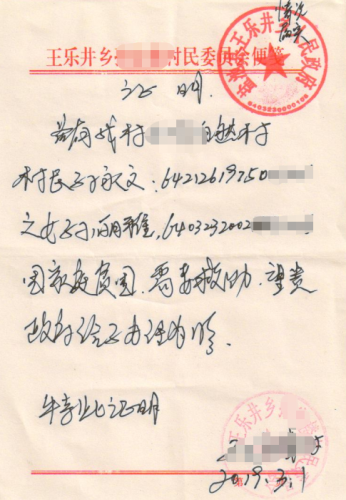 情况
属实
王乐井乡 村民委员会便笺
证明
兹有我村 自然村
村民 永文:64212619750
之女 雅,640323200
因家庭贫困,需要救助,望贵
政府给予办理为盼。
特此证明
王乐井乡
2019.3.1